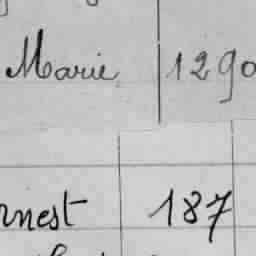 Marie 1290
rnest 187